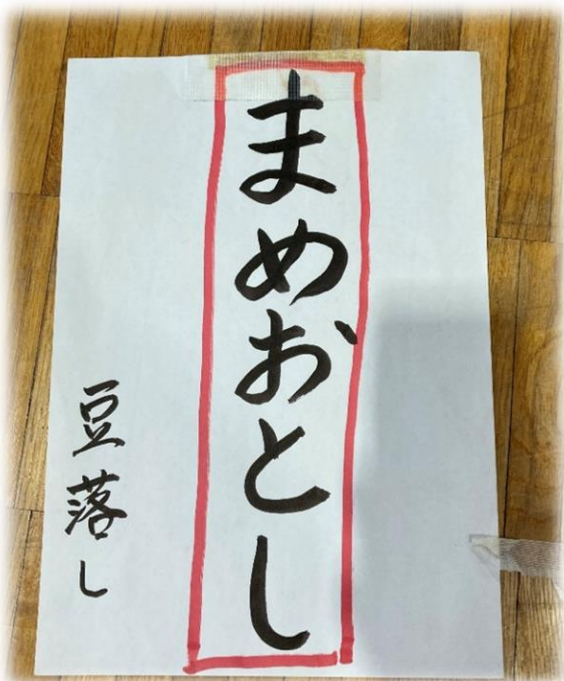 まめおとし
豆落し